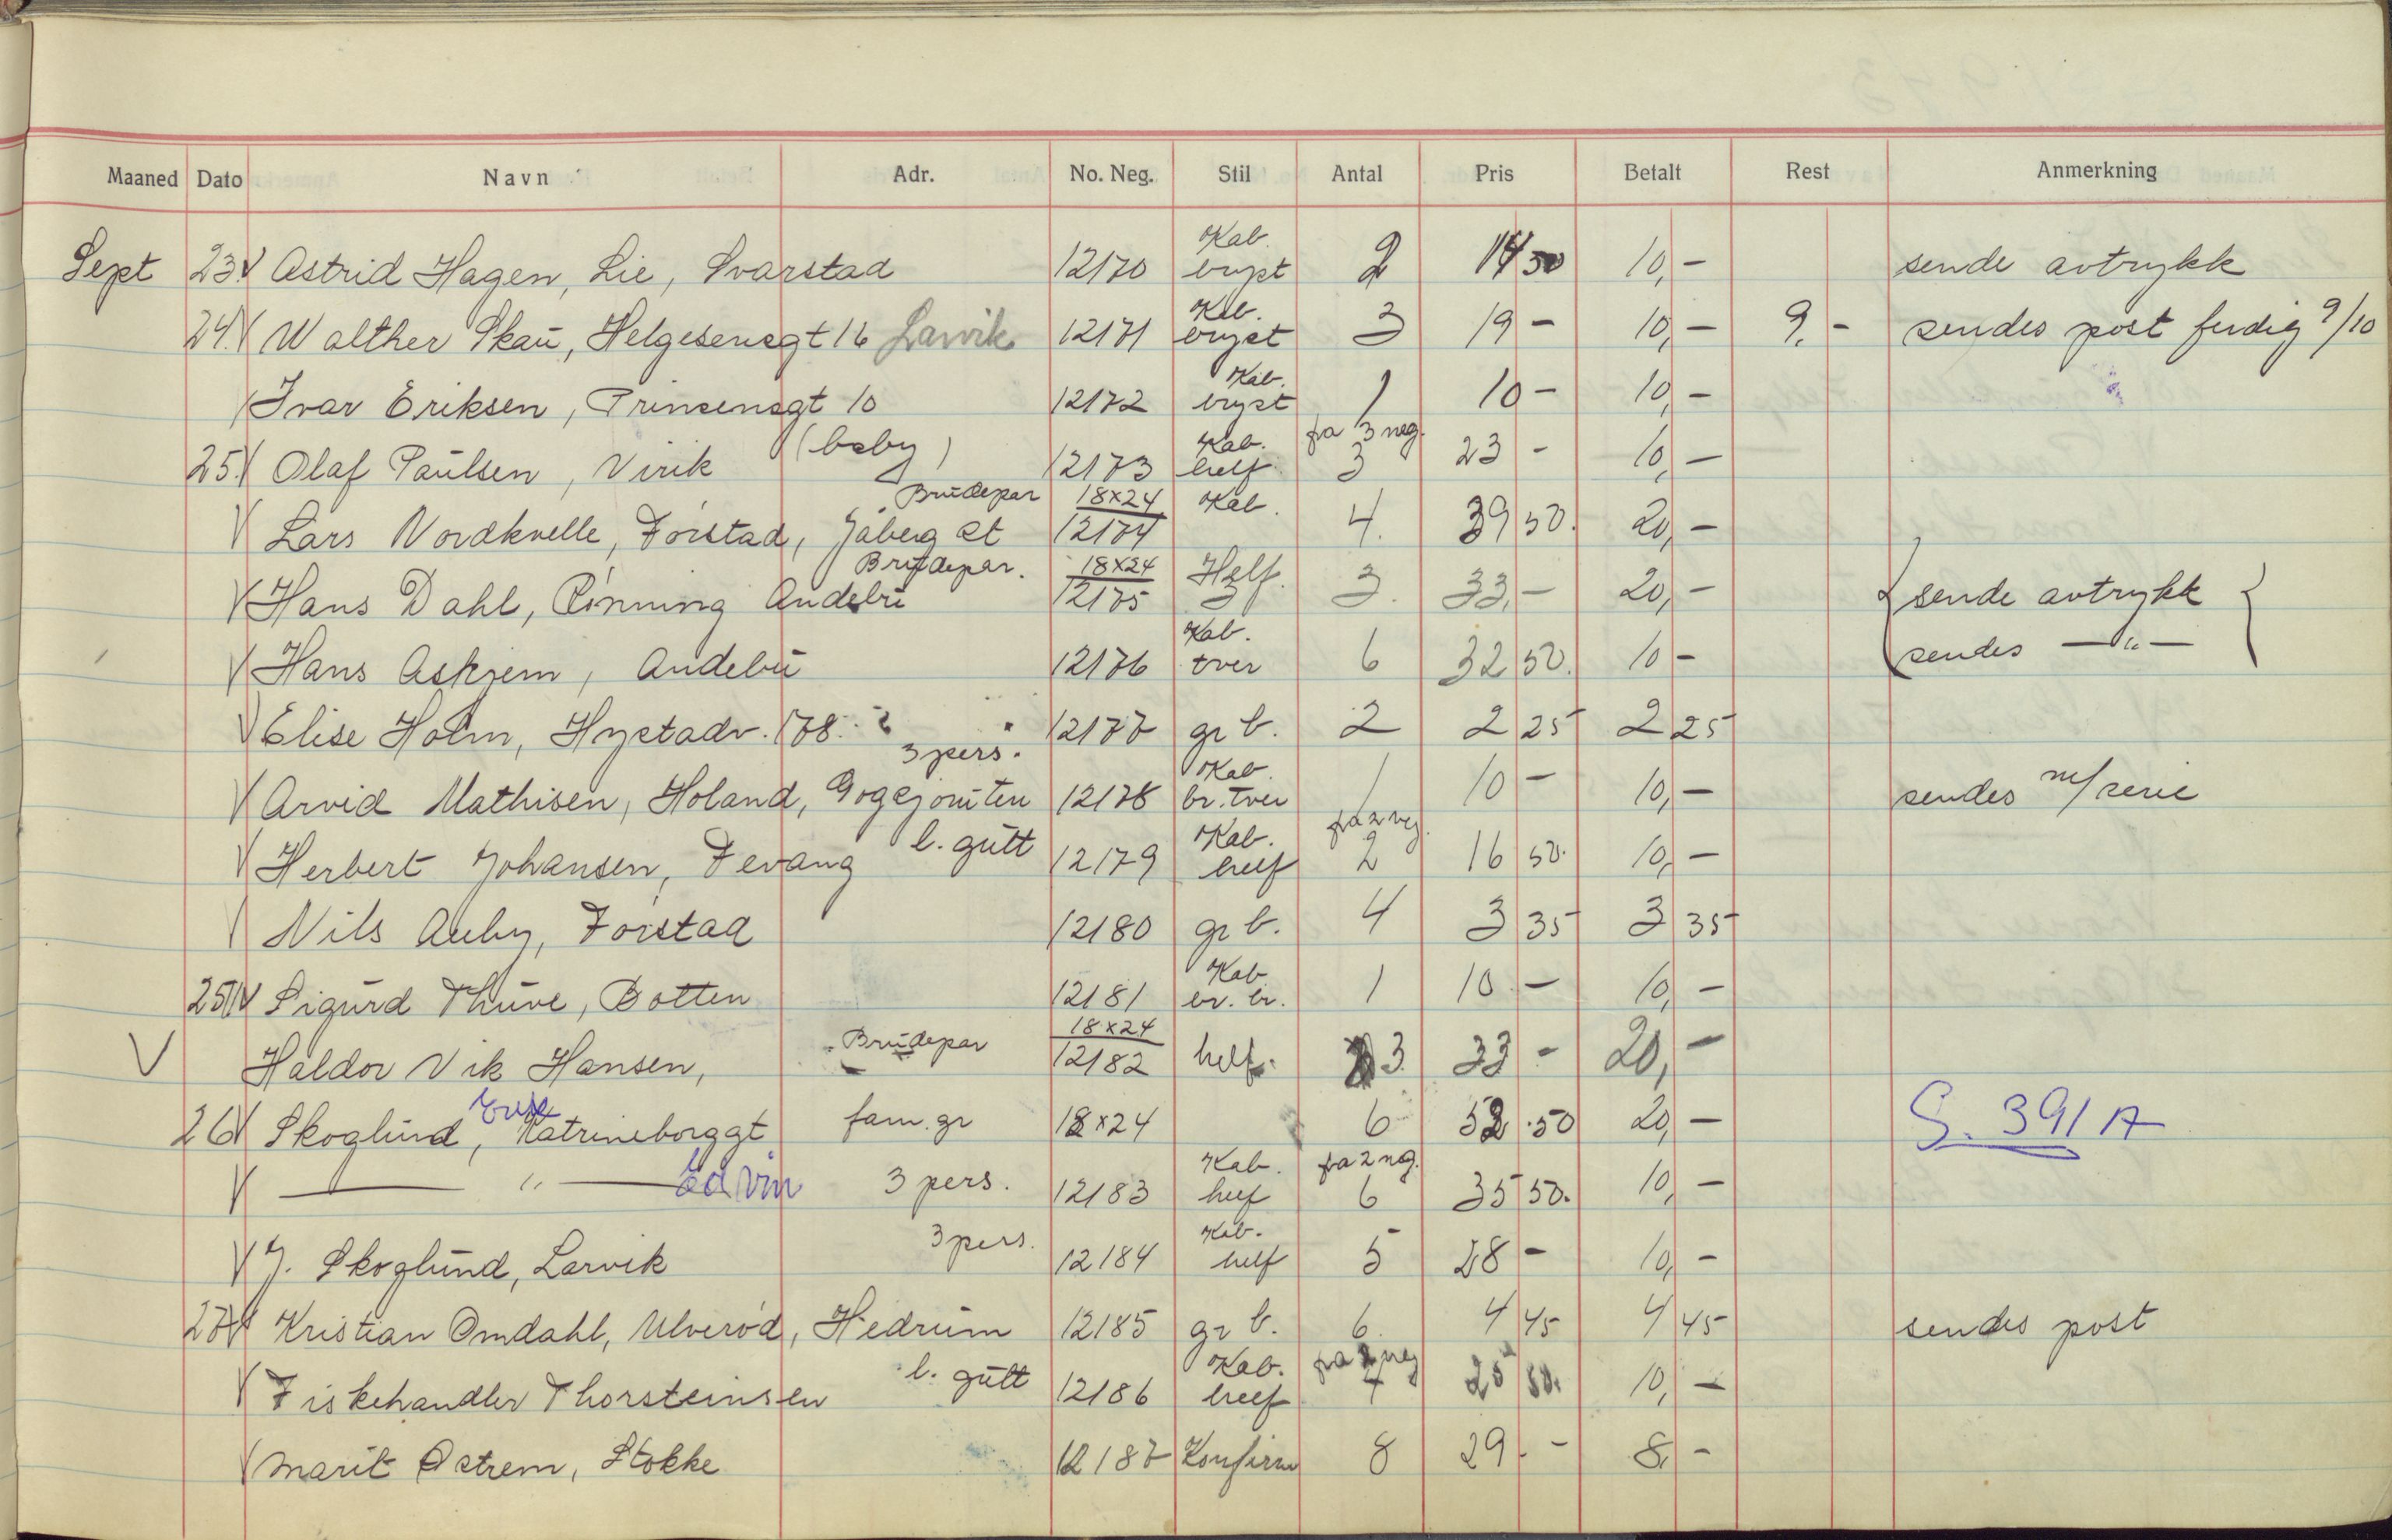 Maaned Dato Navn Adr. No. Neg. Stil Antal Pris Betalt Rest Anmerkning
Sept 23. V Astrid Hagen, Lie, Svarstad 12170 Kab. bryst 2 14 50 10,- sende avtrykk
24. V Walther Skau, Helgesensgt 16 Larvik 12171 Kab. bryst 3 19 - 10,- 9,- sendes post ferdig 9/10
V Ivar Eriksen, Prinsensgt 10 12172 Kab. bryst 1 10 - 10,-
25. V Olaf Paulsen, Virik (baby) 12173 Kab. helf fra 3 neg. 3 23 - 10,-
V Lars Nordkvelle, Torstad, Jåberg st Brudepar 18x24 12174 Kab. 4. 39 50. 20,-
V Hans Dahl, Rønning Andebu Brudepar. 18x24 12175 Helf. 3. 33,- 20,- sende avtrykk
V Hans Askjem, Andebu 12176 Kab. tver 6 32 50. 10 - sendes —"—
V Elise Holm, Hystadv. 178. 12177 gr b. 2 2 25 2 25
V Arvid Mathisen, Holand, Gogsjøruten 3 pers. 12178 Kab. br. tver 1 10 - 10,- sendes m/serie
V Herbert Johansen, Tevang l. gutt 12179 Kab. helf fra 2 neg. 2 16 50. 10,-
V Nils Auby, Torstad 12180 gr b. 4 3 35 3 35
25 V Sigurd Thuve, Botten 12181 Kab br. br. 1 10 - 10,-
V Haldor Vik Hansen, Brudepar 18x24 12182 helf. 3 33 - 20,-
26 V Skoglund, Katrineborggt fam. gr 18x24 6 52 .50 20,- S. 391 A
V — " — Edvin 3 pers. 12183 Kab. helf fra 2 neg. 6 35 50. 10,-
V J. Skoglund, Larvik 3 pers. 12184 Kab. helf 5 28 - 10,-
27 V Kristian Omdahl, Ulverød, Hedrum 12185 gr b. 6. 4 45 4 45 sendes post
V Fiskehandler Thorsteinsen l. gutt 12186 Kab. helf fra 2 neg 4 25 50. 10,-
V Marit Østrem, Stokke 12187 Konfirm 8 29. - 8,-